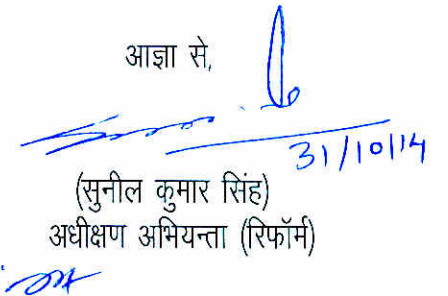 आज्ञा से,
31/10/14
(सुनील कुमार सिंह)
अधीक्षण अभियन्ता (रिफॉर्म)